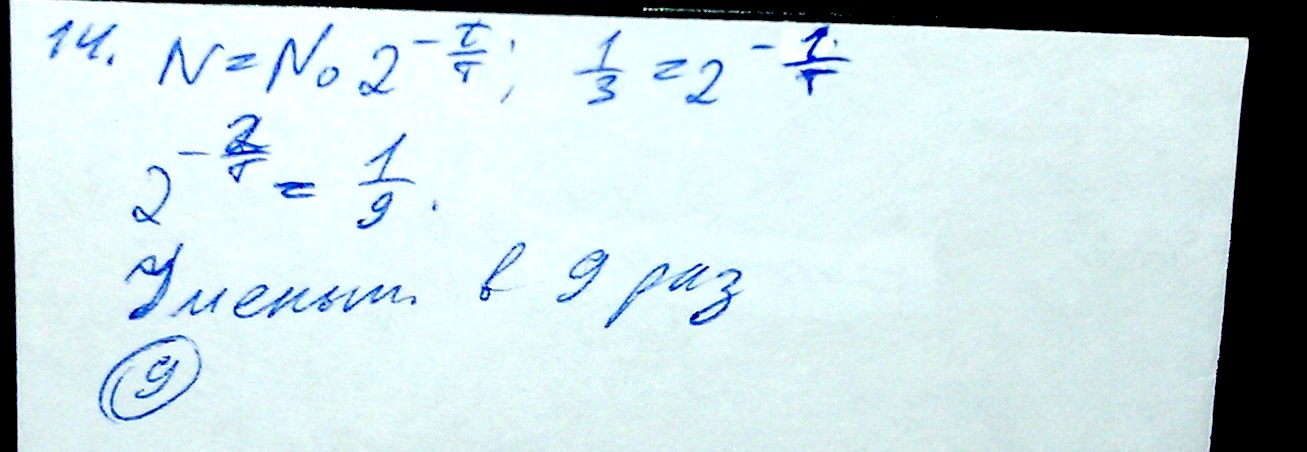 14. N = N₀ 2^(-t/T); 1/3 = 2^(-1/T)
2^(-2/T) = 1/9.
Уменьш. в 9 раз
9